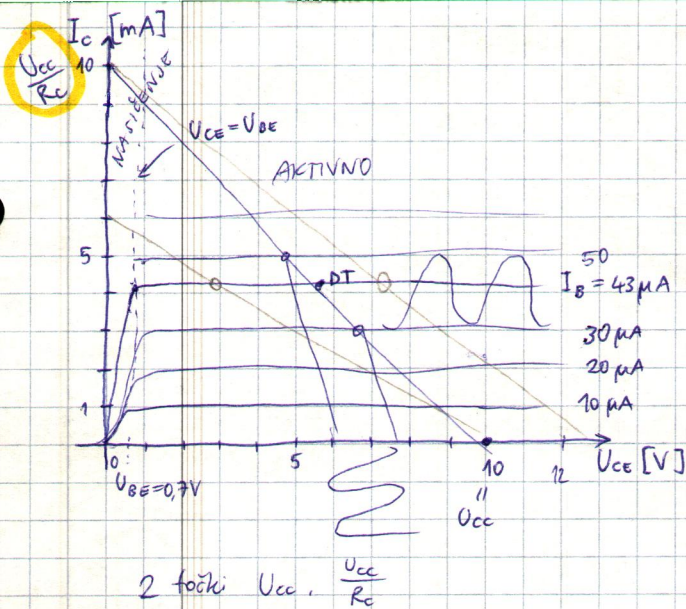 I_C [mA]
U_CC / R_C
10
NASIČENJE
U_CE = U_BE
AKTIVNO
5
50
DT
I_B = 43 μA
30 μA
20 μA
1
10 μA
0
5
10
12
U_CE [V]
U_BE = 0,7V
"
U_CC
2 točki U_CC, U_CC / R_C